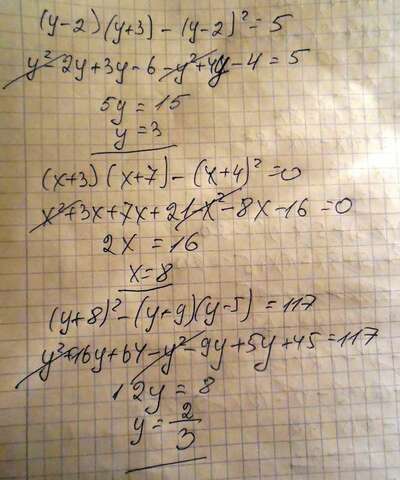 (y-2)(y+3)-(y-2)²=5
y²-2y+3y-6-y²+4y-4=5
5y=15
y=3
(x+3)(x+7)-(x+4)²=0
x²+3x+7x+21-x²-8x-16=0
2x=16
x=8
(y+8)²-(y+9)(y-5)=117
y²+16y+64-y²-9y+5y+45=117
12y=8
y=2/3